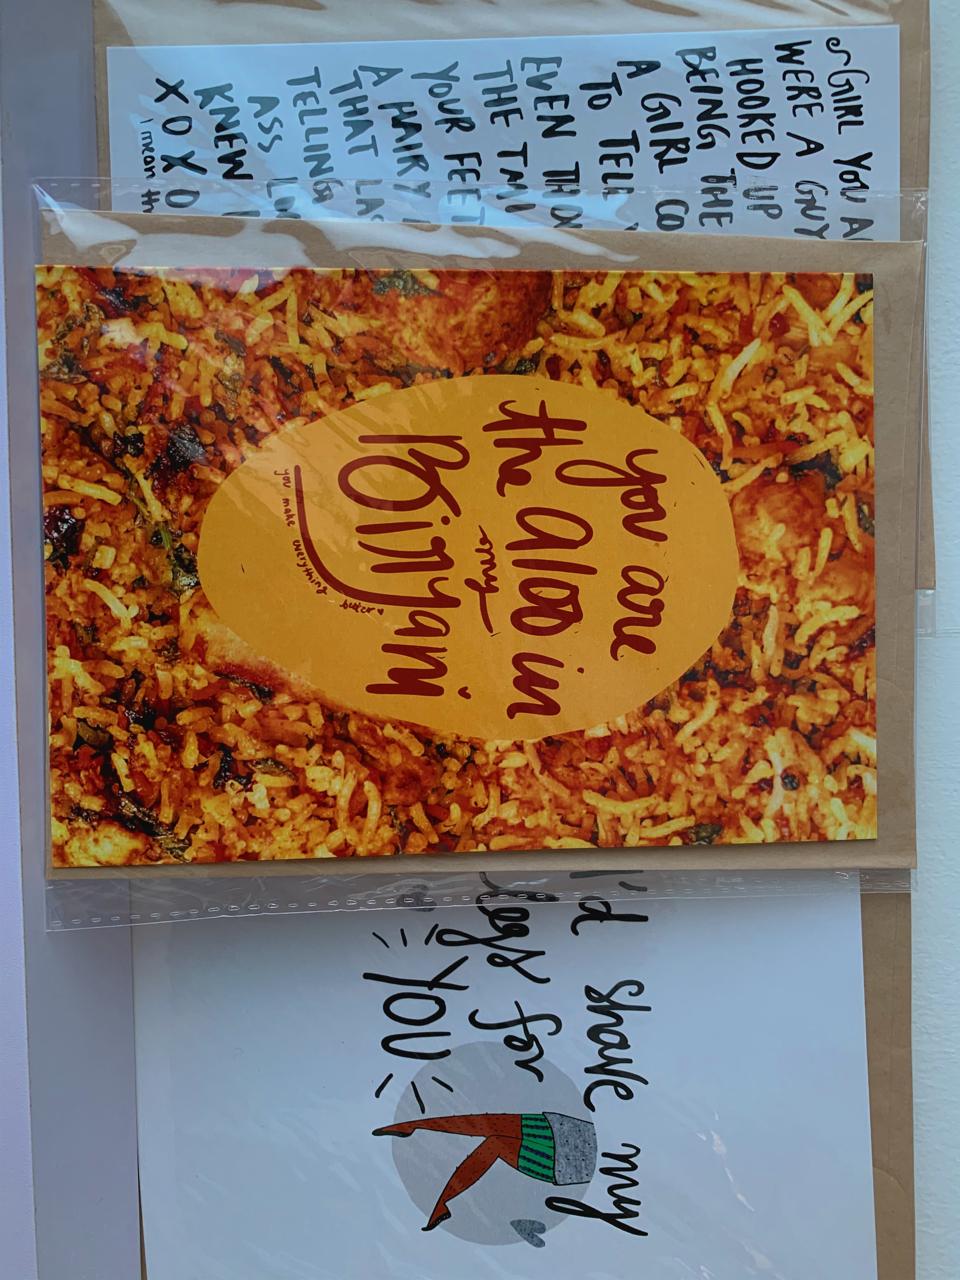 GIRL YOU
WERE A GUY
HOOKED UP
BEING THE
A GIRL
TO TELL
EVEN
THE TMI
YOUR FEET
A HAIRY
THAT
TELLING
ASS
KNEW
X O X O
I mean
you are
the aloo in
my
Biryani
you make everything better
I'd shave my
legs for
YOU